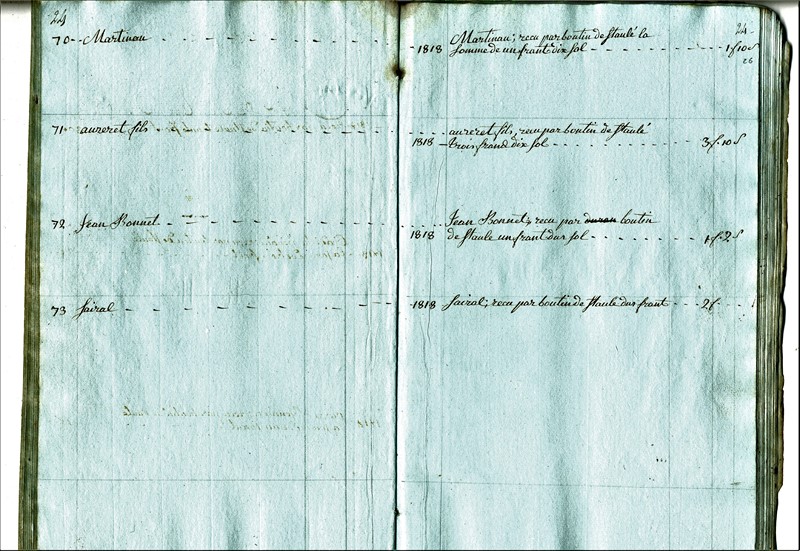 24
70 Martinau
71 auzeret fils
72 Jean Bonnet
73 Sairal
24
26
1818 Martinau; recu par boutin de Staulé la
Somme de un frant dix sol 1f 10 s
auzeret fils, recu par boutin de Staulé
1818 trois frand dix sol 3f. 10 s
Jean Bonnet; recu par boutin
1818 de Staule un frant dus sol 1f. 2 s
1818 Sairal; recu par boutin de Staule dus frant 2f